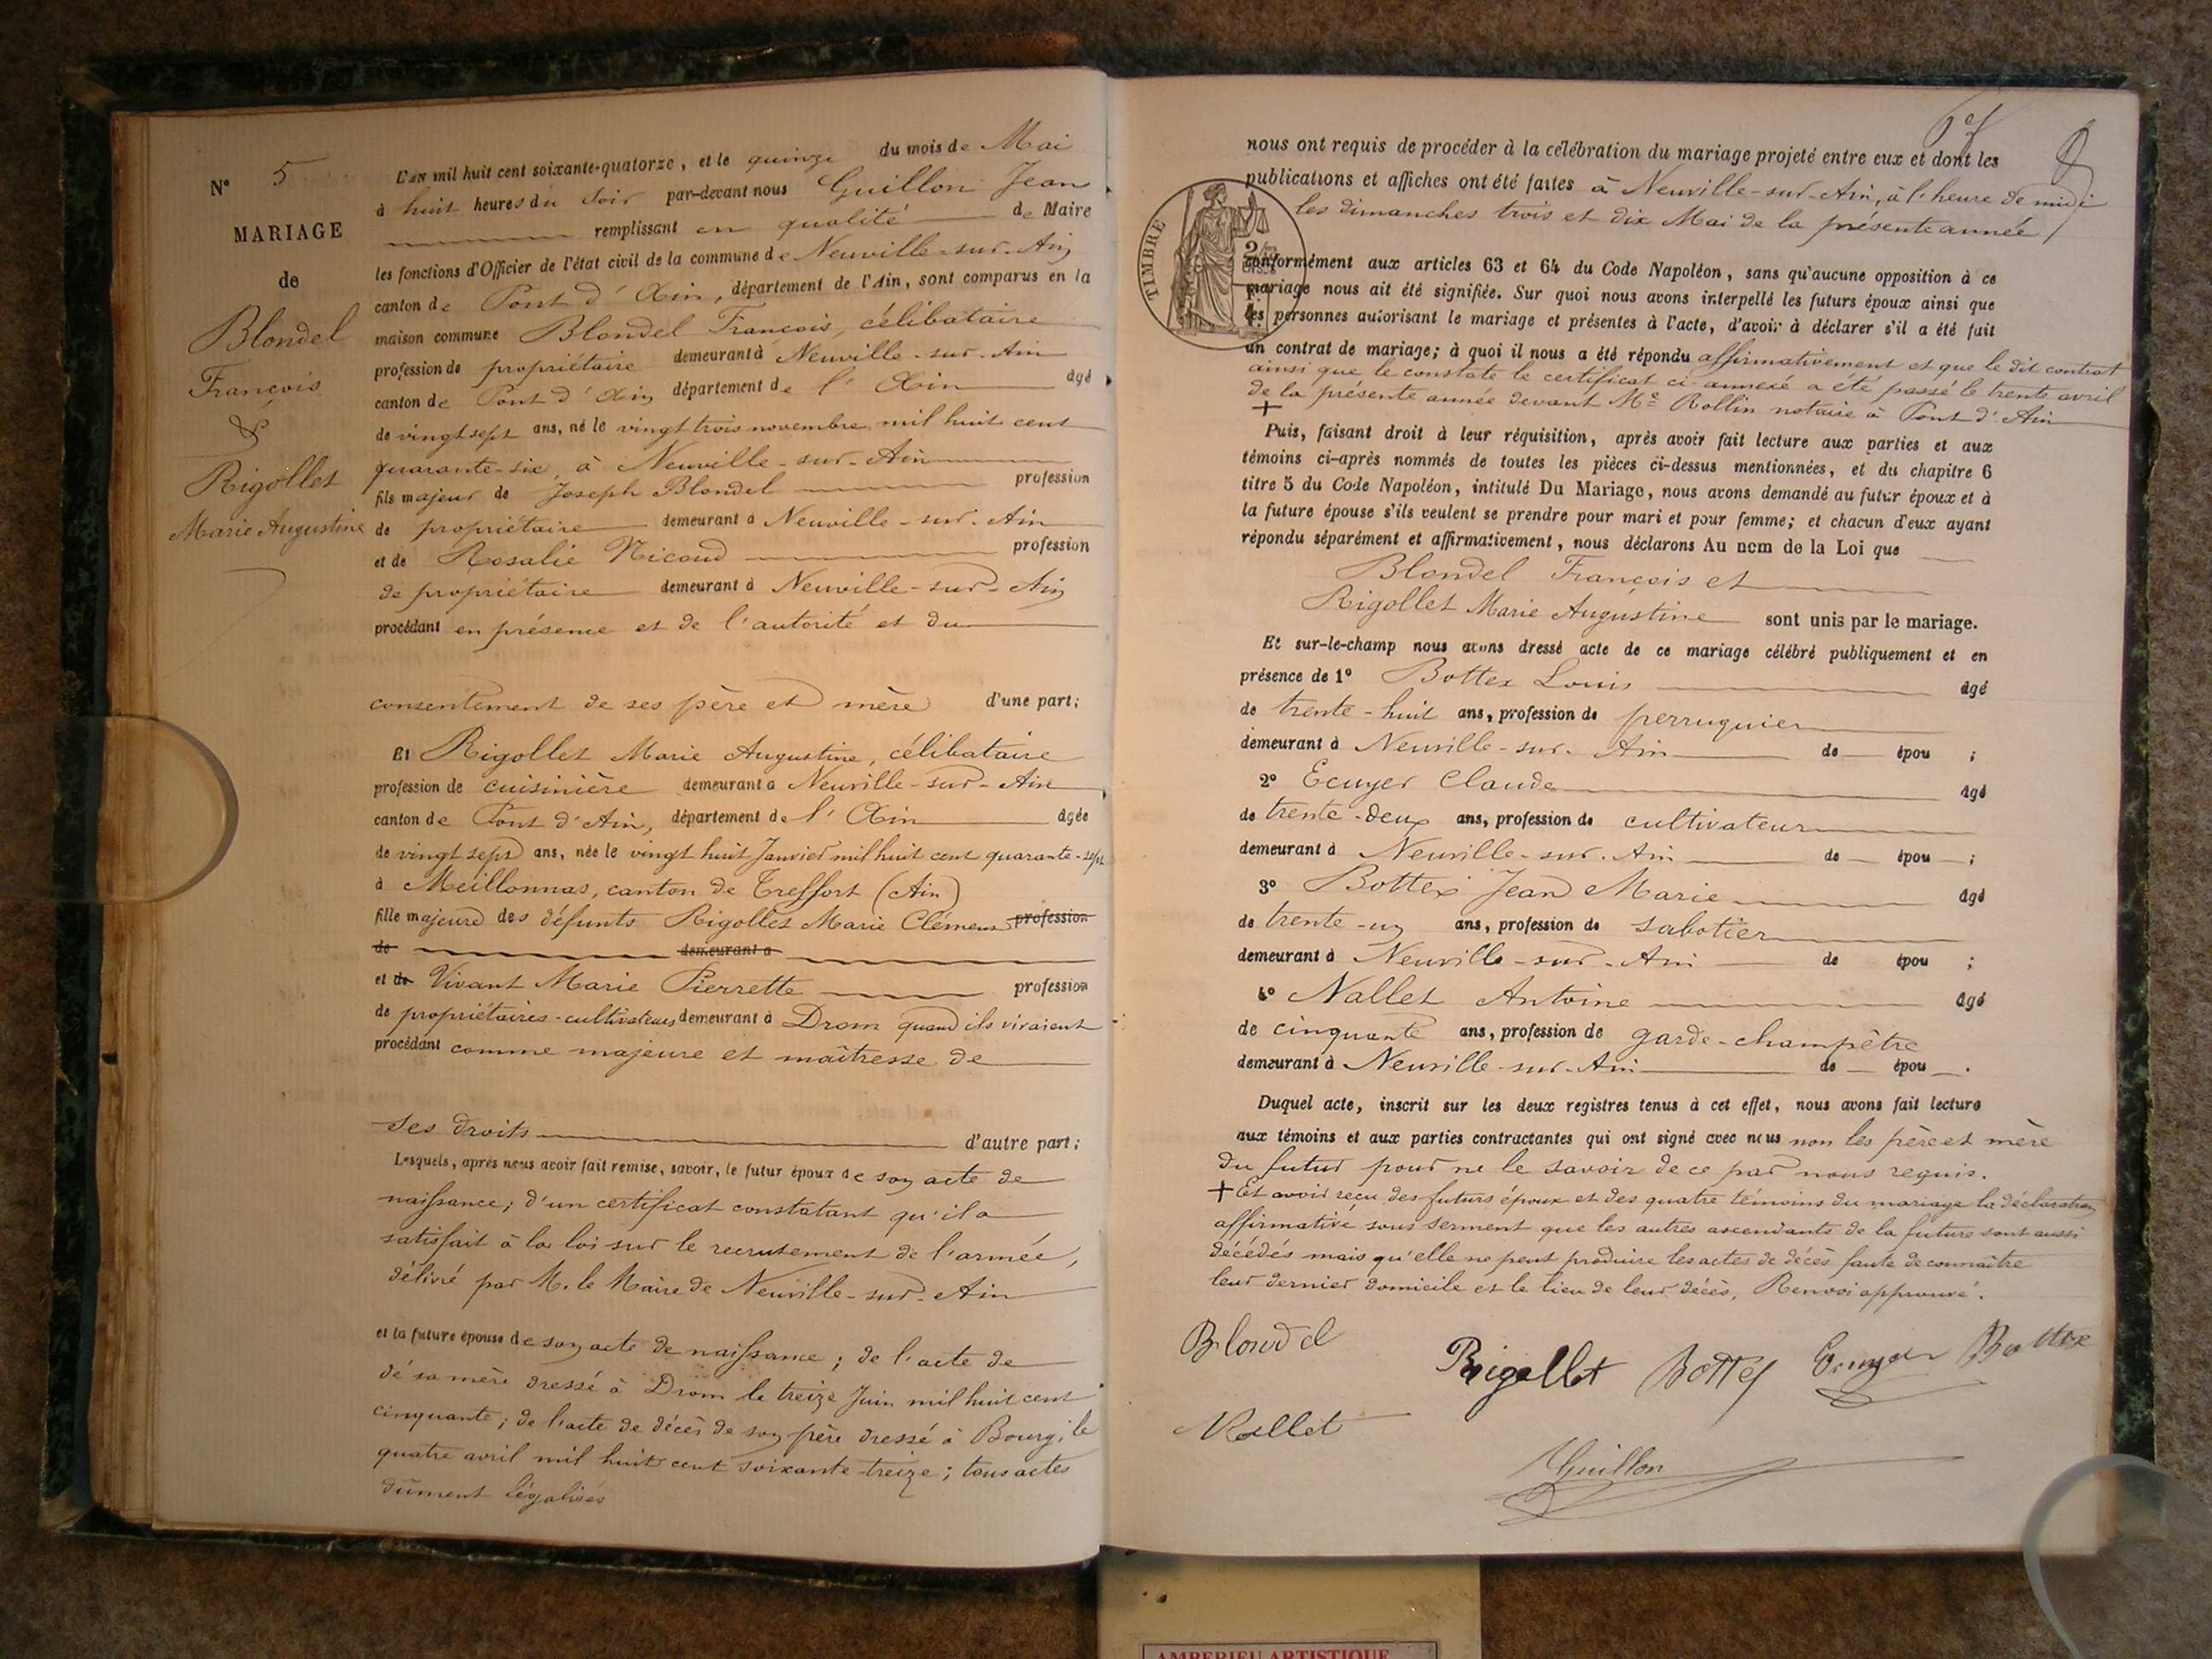 N° 5
MARIAGE
de
Blondel
François
&
Rigollet
Marie Augustine
L'an mil huit cent soixante-quatorze, et le quinze du mois de Mai
à huit heures du soir par-devant nous Guillon Jean
remplissant en qualité de Maire
les fonctions d'Officier de l'état civil de la commune de Neuville-sur-Ain
canton de Pont d'Ain, département de l'Ain, sont comparus en la
maison commune Blondel François, célibataire
profession de propriétaire demeurant à Neuville-sur-Ain
canton de Pont d'Ain département de l'Ain âgé
de vingt sept ans, né le vingt trois novembre mil huit cent
quarante-six à Neuville-sur-Ain
fils majeur de Joseph Blondel profession
de propriétaire demeurant à Neuville-sur-Ain
et de Rosalie Nicoud profession
de propriétaire demeurant à Neuville-sur-Ain
procédant en présence et de l'autorité et du
consentement de ses père et mère d'une part;
Et Rigollet Marie Augustine, célibataire
profession de cuisinière demeurant à Neuville-sur-Ain
canton de Pont d'Ain, département de l'Ain âgée
de vingt sept ans, née le vingt huit Janvier mil huit cent quarante-sept
à Meillonnas, canton de Treffort (Ain)
fille majeure des défunts Rigollet Marie Clément profession
de demeurant à
et de Vivant Marie Pierrette profession
de propriétaires-cultivateurs demeurant à Drom quand ils vivaient
procédant comme majeure et maîtresse de
ses droits d'autre part;
Lesquels, après nous avoir fait remise, savoir, le futur époux de son acte de
naissance; d'un certificat constatant qu'il a
satisfait à la loi sur le recrutement de l'armée,
délivré par M. le Maire de Neuville-sur-Ain
et la future épouse de son acte de naissance; de l'acte de
dé sa mère dressé à Drom le treize Juin mil huit cent
cinquante; de l'acte de décès de son père dressé à Bourg, le
quatre avril mil huit cent soixante-treize; tous actes
dûment légalisés
nous ont requis de procéder à la célébration du mariage projeté entre eux et dont les
publications et affiches ont été faites à Neuville-sur-Ain, à l'heure de midi
les dimanches trois et dix Mai de la présente année
TIMBRE
conformément aux articles 63 et 64 du Code Napoléon, sans qu'aucune opposition à ce
mariage nous ait été signifiée. Sur quoi nous avons interpellé les futurs époux ainsi que
les personnes autorisant le mariage et présentes à l'acte, d'avoir à déclarer s'il a été fait
un contrat de mariage; à quoi il nous a été répondu affirmativement et que le dit contrat
ainsi que le constate le certificat ci-annexé a été passé le trente avril
de la présente année devant Me Rollin notaire à Pont d'Ain
+
Puis, faisant droit à leur réquisition, après avoir fait lecture aux parties et aux
témoins ci-après nommés de toutes les pièces ci-dessus mentionnées, et du chapitre 6
titre 5 du Code Napoléon, intitulé Du Mariage, nous avons demandé au futur époux et à
la future épouse s'ils veulent se prendre pour mari et pour femme; et chacun d'eux ayant
répondu séparément et affirmativement, nous déclarons Au nom de la Loi que
Blondel François et
Rigollet Marie Augustine sont unis par le mariage.
Et sur-le-champ nous avons dressé acte de ce mariage célébré publiquement et en
présence de 1° Bottex Louis âgé
de trente-huit ans, profession de perruquier
demeurant à Neuville-sur-Ain de épou ;
2° Ecuyer Claude âgé
de trente-deux ans, profession de cultivateur
demeurant à Neuville-sur-Ain de épou ;
3° Bottex Jean Marie âgé
de trente-un ans, profession de sabotier
demeurant à Neuville-sur-Ain de épou ;
4° Nallet Antoine âgé
de cinquante ans, profession de garde-champêtre
demeurant à Neuville-sur-Ain de épou .
Duquel acte, inscrit sur les deux registres tenus à cet effet, nous avons fait lecture
aux témoins et aux parties contractantes qui ont signé avec nous non les père et mère
du futur pour ne le savoir de ce par nous requis.
+ Et avoir reçu des futurs époux et des quatre témoins du mariage la déclaration
affirmative sous serment que les autres ascendants de la future sont aussi
décédés mais qu'elle ne peut produire les actes de décès faute de connaître
leur dernier domicile et le lieu de leur décès. Renvoi approuvé.
Blondel
Rigollet Bottex Ecuyer Bottex
Nallet
Guillon
AMBERIEU ARTISTIQUE